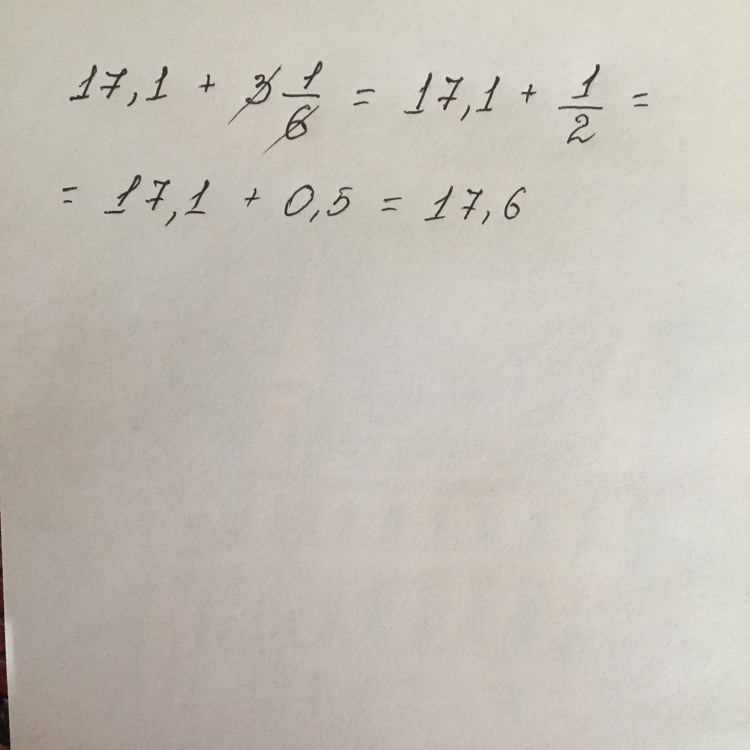 17,1 + 3 1/6 = 17,1 + 1/2 =
= 17,1 + 0,5 = 17,6